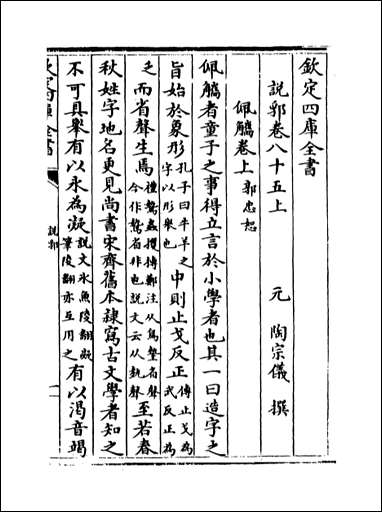 欽定四庫全書
說郛卷八十五上
元 陶宗儀 撰
佩觿卷上 郭忠恕
佩觿者童子之事得立言於小學者也其一曰造字之
旨始於象形孔子曰牛羊之字以形舉也中則止戈反正傳止戈為武反正為
乏而省聲生焉禮鷙蟲攫搏鄭注从鳥摯省聲今作鷙省非也說文云从執聲至若春
秋姓字地名更見尚書宋齊舊本隸寫古文學者知之
不可具舉有以氷為凝說文氷魚陵翻凝筆陵翻亦互用之有以渴音竭
欽定四庫全書
說郛
一